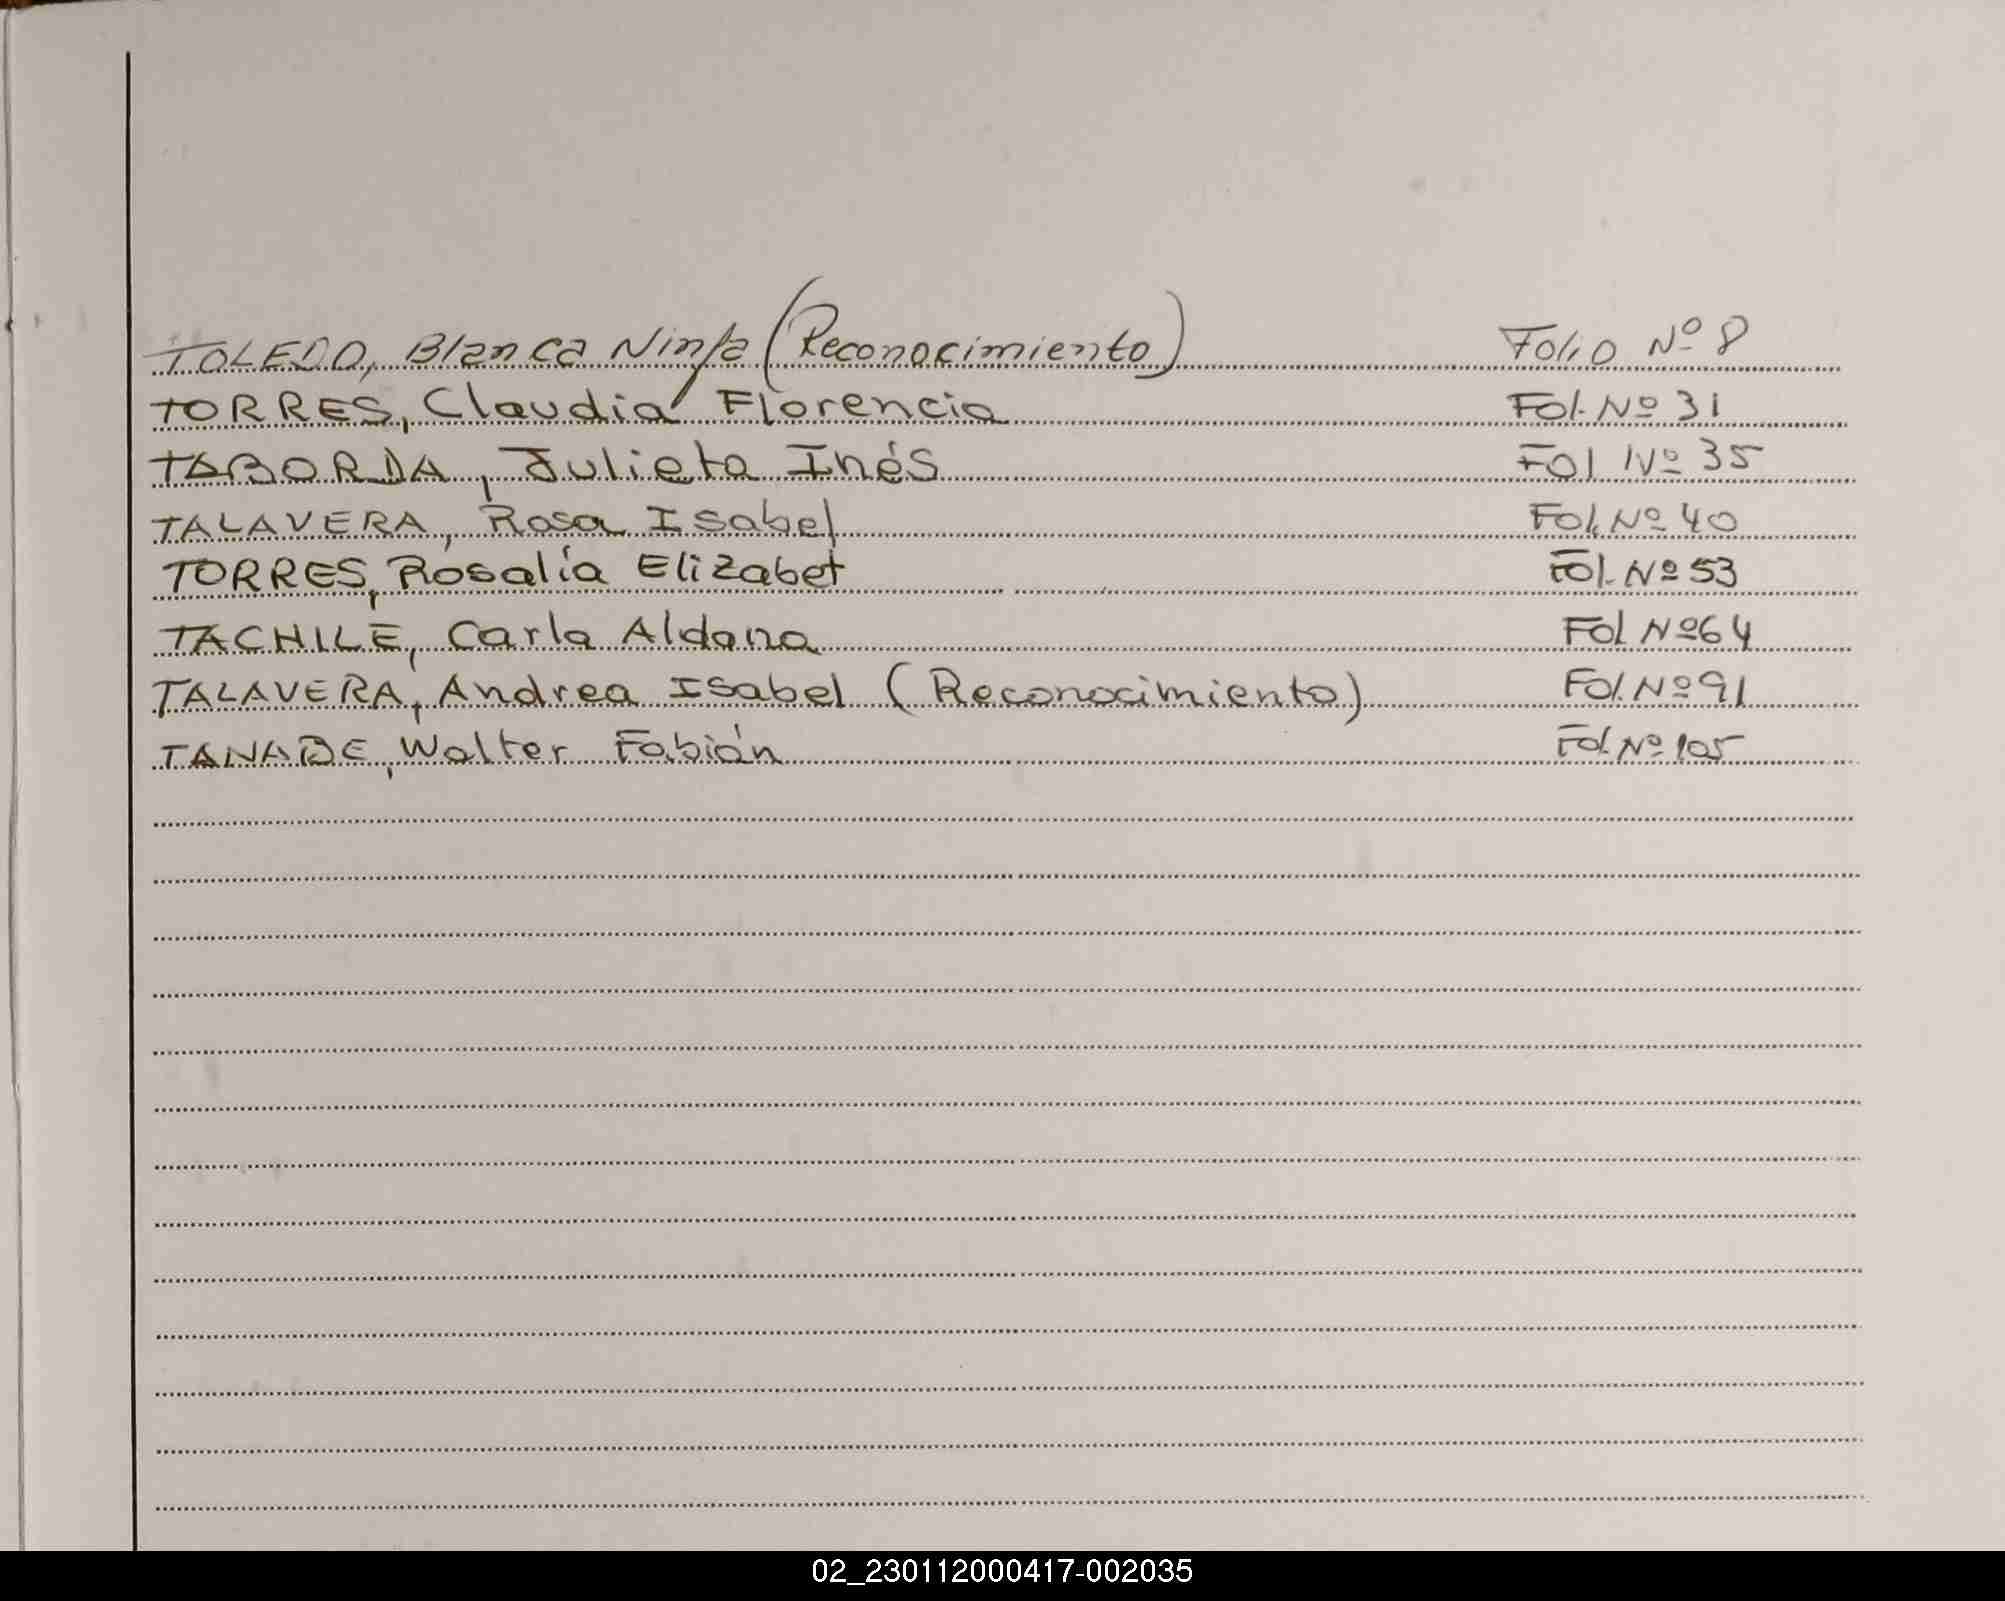 TOLEDO, Blanca Ninfa (Reconocimiento) Folio Nº 8
TORRES, Claudia Florencia Fol. Nº 31
TABORDA, Julieta Inés Fol Nº 35
TALAVERA, Rosa Isabel Fol. Nº 40
TORRES, Rosalía Elizabet Fol. Nº 53
TACHILE, Carla Aldana Fol Nº 64
TALAVERA, Andrea Isabel (Reconocimiento) Fol. Nº 91
TANADE, Walter Fabián Fol. Nº 105
02_230112000417-002035